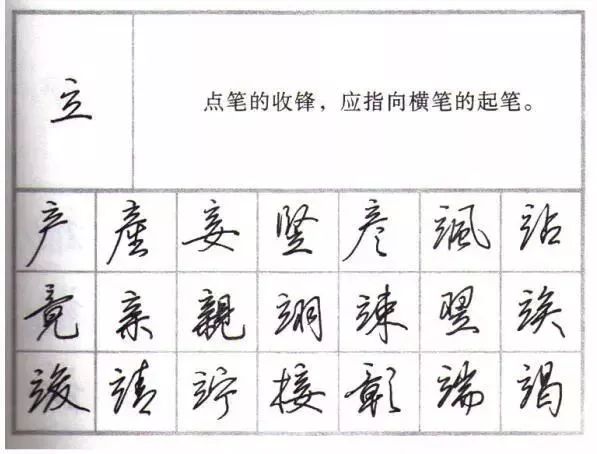 立
点笔的收锋，应指向横笔的起笔。
产 產 妾 竖 彦 飒 站
竟 亲 親 翊 竦 翌 竢
竣 靖 竚 接 彰 端 竭